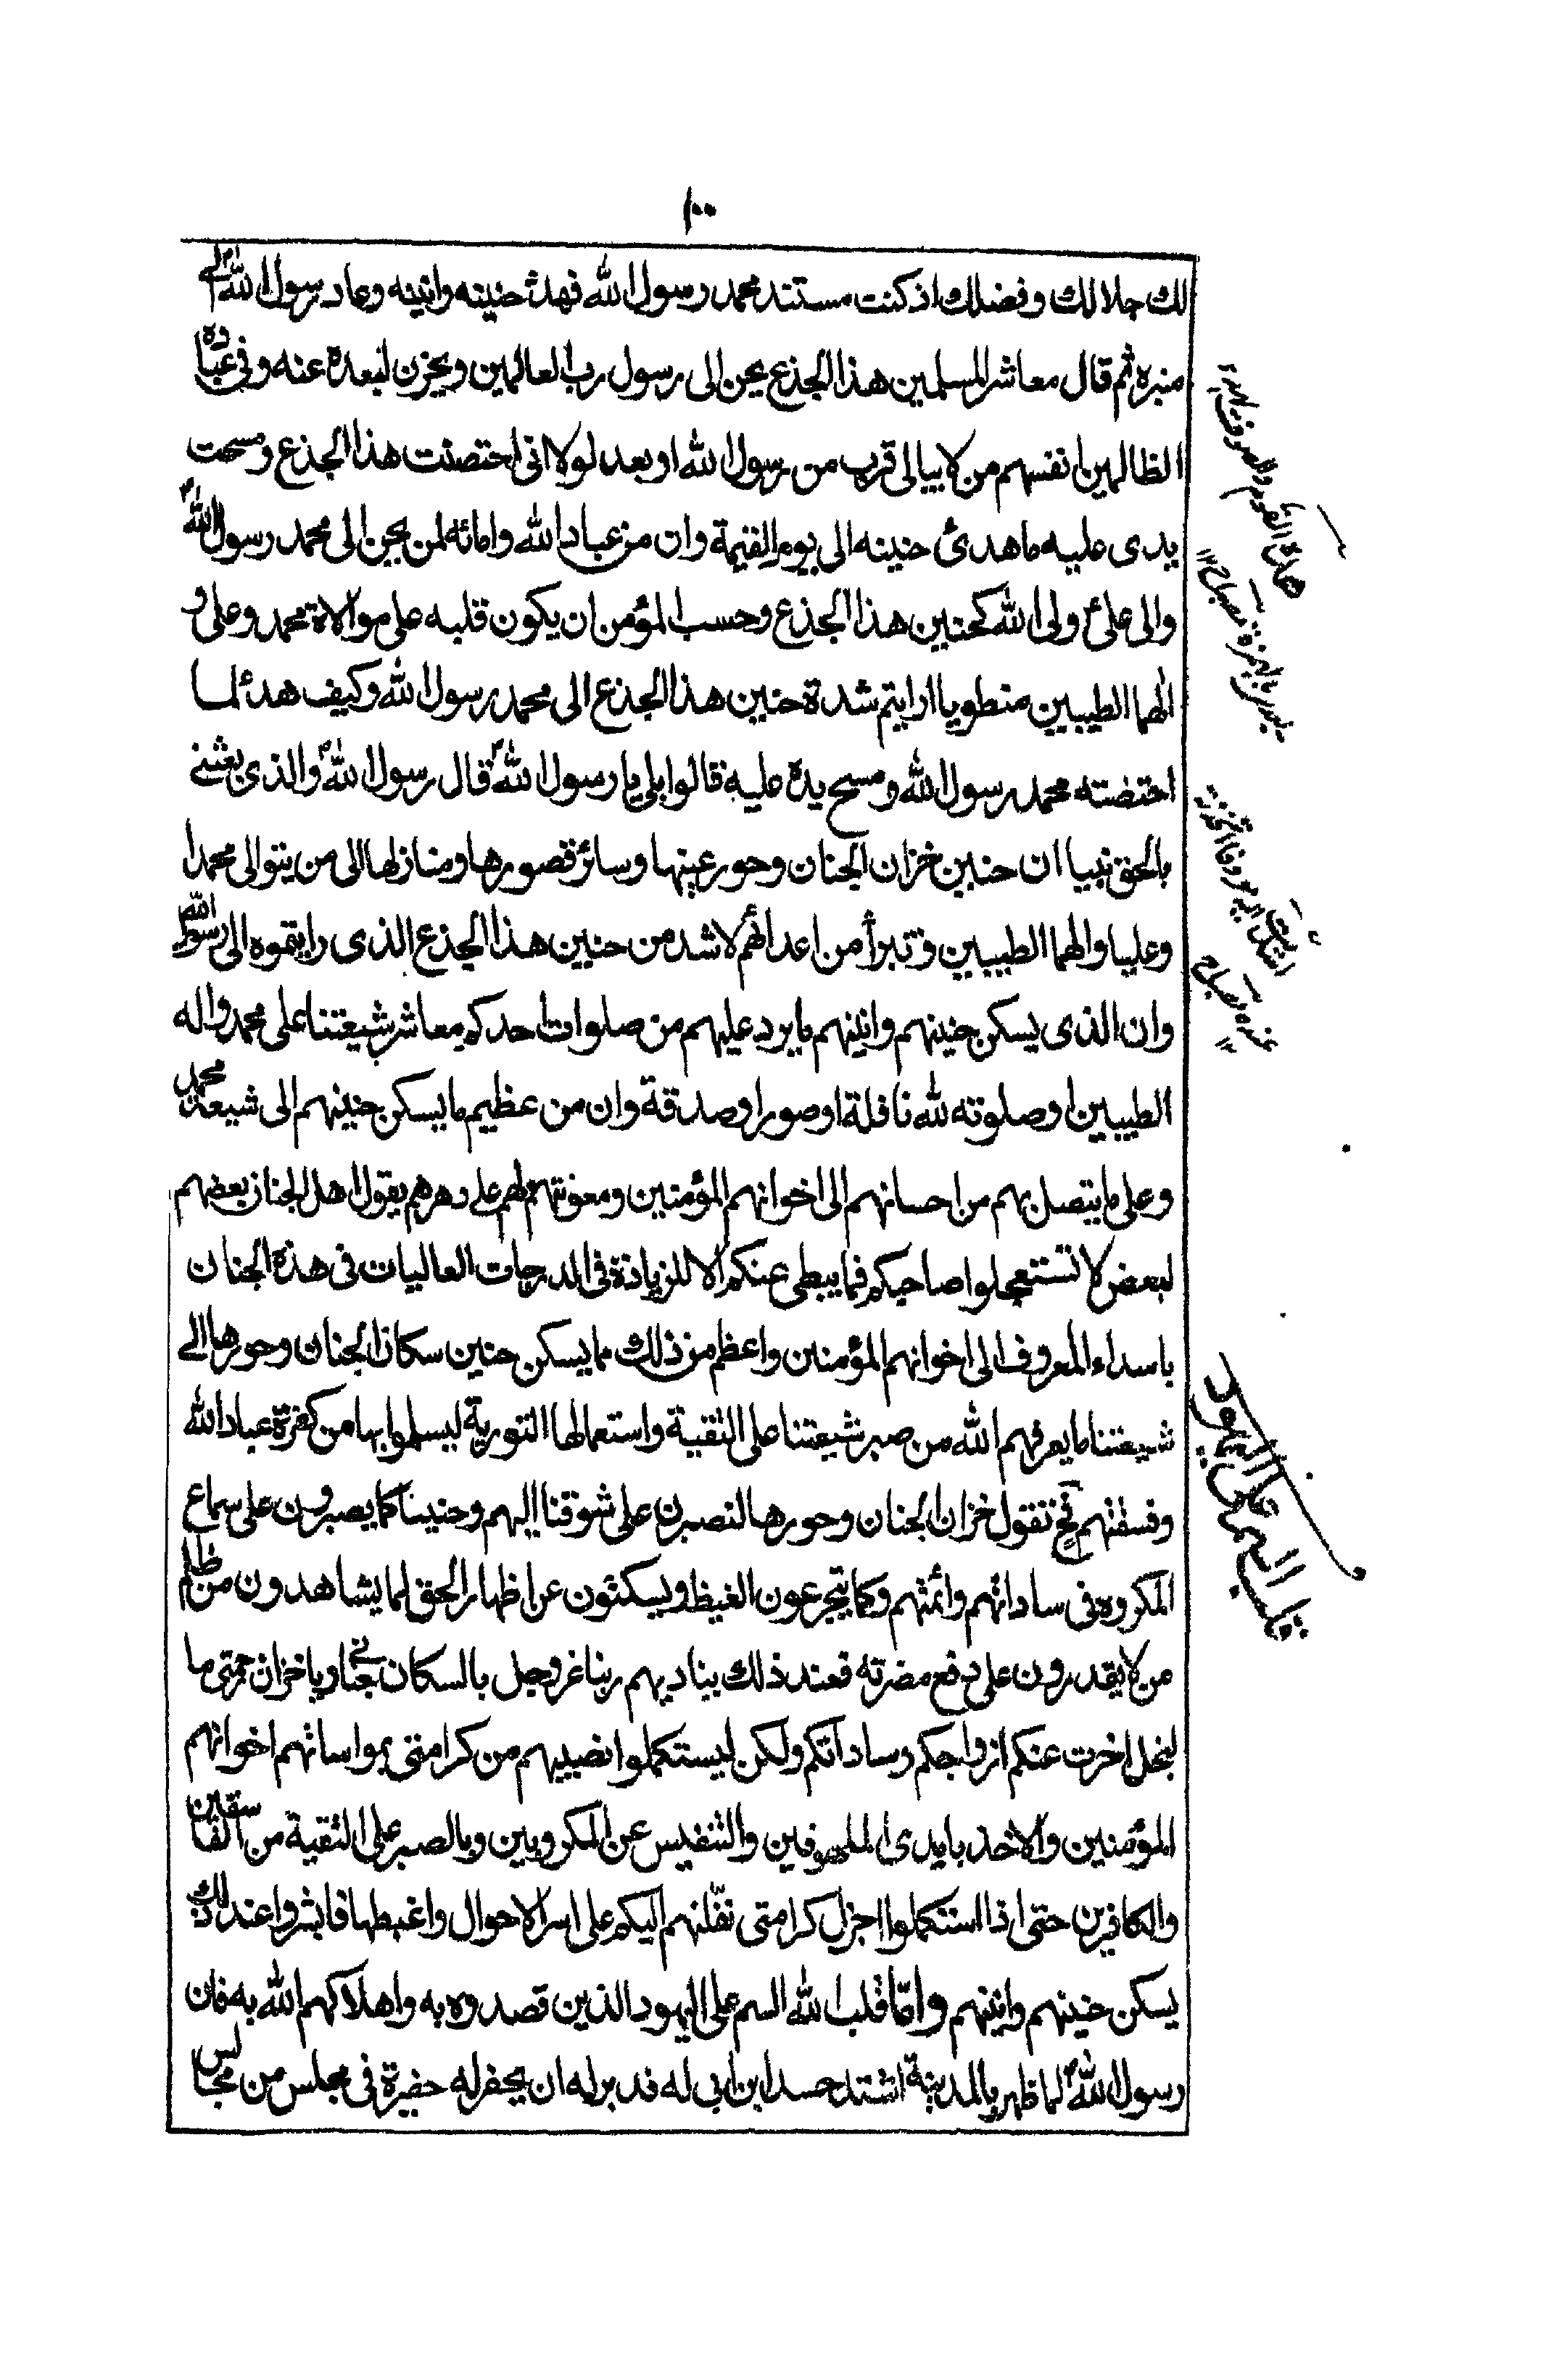 ١٠٠
لك جلالك وفضلك اذ كنت مستند محمد رسول الله فهدئ حنينه وانينه وعاد رسول الله ص الى
منبره ثم قال معاشر المسلمين هذا الجذع يحن الى رسول رب العالمين ويحزن لبعده عنه وفى عباده
الظالمين انفسهم من لا يبالى قرب من رسول الله او بعد لولا انى احتضنت هذا الجذع ومسحت
يدى عليه ما هدئ حنينه الى يوم القيمة وان من عباد الله وامائه لمن يحن الى محمد رسول الله ص
والى على ولى الله كحنين هذا الجذع وحسب المؤمن ان يكون قلبه على موالاة محمد وعلى و
الهما الطيبين منطويا ارايتم شدة حنين هذا الجذع الى محمد رسول الله وكيف هدئ لما
احتضنته محمد رسول الله ومسح يده عليه قالوا بلى يا رسول الله ص قال رسول الله ص والذى بعثنى
بالحق نبيا ان حنين خزان الجنان وحور عينها وسائر قصورها ومنازلها الى من يتوالى محمدا
وعليا والهما الطيبين وتبرأ من اعدائهم لاشد من حنين هذا الجذع الذى رايتموه الى رسول الله
وان الذى يسكن حنينهم وانينهم ما يرد عليهم من صلوات احدكم معاشر شيعتنا على محمد واله
الطيبين او صلوته لله نافلة او صوم او صدقة وان من عظيم ما يسكن حنينهم الى شيعة محمد
وعلى ما يتصل بهم من احسانهم الى اخوانهم المؤمنين ومعونتهم لهم على دهرهم يقول اهل الجنان بعضهم
لبعض لا تستعجلوا صاحبكم فما يبطى عنكم الا للزيادة فى الدرجات العاليات فى هذه الجنان
باسداء المعروف الى اخوانهم المؤمنين واعظم من ذلك مما يسكن حنين سكان الجنان وحورها الى
شيعتنا ما يعرفهم الله من صبر شيعتنا على التقية واستعمالها التورية ليسلموا بها من كفرة عباد الله
وفسقتهم فح تقول خزان الجنان وحورها لنصبرن على شوقنا اليهم وحنيننا كما يصبرون على سماع
المكروه فى ساداتهم وائمتهم وكما يتجرعون الغيظ ويسكتون عن اظهار الحق لما يشاهدون من ظلم
من لا يقدرون على دفع مضرته فعند ذلك يناديهم ربنا عز وجل يا سكان جنانى ويا خزان رحمتى ما
لبخل اخرت عنكم ازواجكم وساداتكم ولكن ليستكملوا نصيبهم من كرامتى بمواساتهم اخوانهم
المؤمنين والاخذ بايدى الملهوفين والتنفيس عن المكروبين وبالصبر على التقية من الفاسقين
والكافرين حتى اذا استكملوا اجزل كرامتى نقلتهم اليكم على اسر الاحوال واغبطها فابشروا عند ذلك
يسكن حنينهم وانينهم واما قلب الله السم على اليهود الذين قصدوه به واهلاكهم الله به فان
رسول الله ص لما ظهر بالمدينة اشتد حسد ابن ابى له فدبر له ان يحفر له حفيرة فى مجلس من مجالس
قلب السم على اليهود